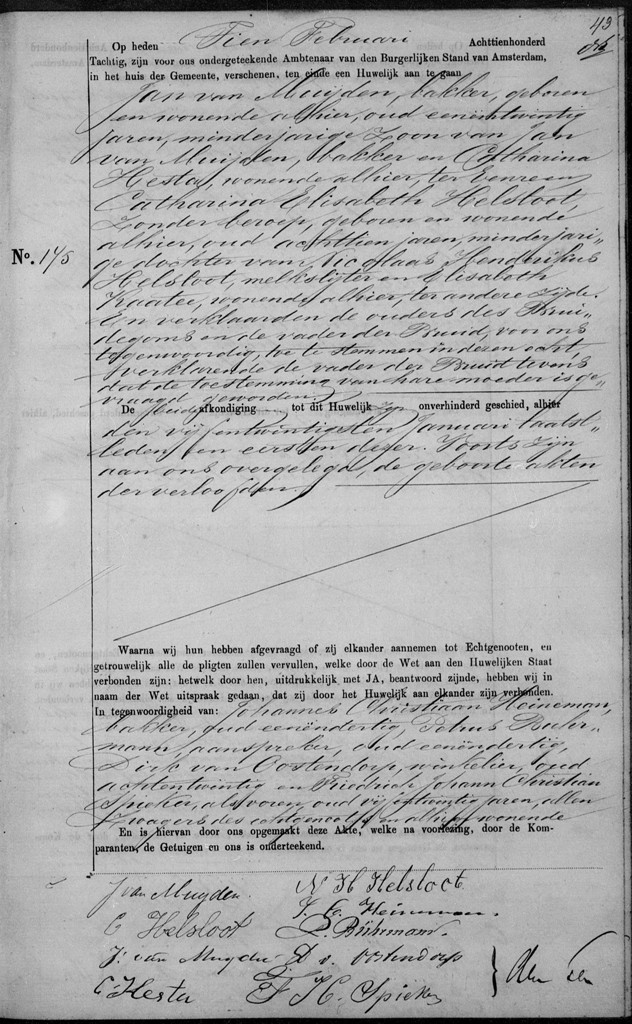 43
Op heden Tien Februari Achttienhonderd
Tachtig, zijn voor ons ondergeteekende Ambtenaar van den Burgerlijken Stand van Amsterdam,
in het huis der Gemeente, verschenen, ten einde een Huwelijk aan te gaan
Jan van Muijden, bakker, geboren
en wonende alhier, oud eenëntwintig
jaren, minderjarige Zoon van Jan
van Muijden, bakker en Catharina
Hesta, wonende alhier, ter eenre en
Catharina Elisabeth Helsloot,
Zonder beroep, geboren en wonende
alhier, oud achttien jaren, minderjari-
No. 175
ge dochter van Nicolaas Hendrikus
Helsloot, melkslijter en Elisabeth
Kaatee, wonende alhier, ter andere Zijde.
En verklaarden de ouders des Brui-
degoms en de vader der Bruid, voor ons
tegenwoordig, toe te stemmen in dezen echt,
verklarende de vader der Bruid tevens
dat de toestemming van hare moeder is ge-
vraagd geworden.
De beide afkondiging tot dit Huwelijk zijn onverhinderd geschied, alhier
den vijfentwintigsten Januari laatst-
leden en eersten dezer. Voorts zijn
aan ons overgelegd, de geboorte akten
der verloofden.
Waarna wij hun hebben afgevraagd of zij elkander aannemen tot Echtgenooten, en
getrouwelijk alle de pligten zullen vervullen, welke door de Wet aan den Huwelijken Staat
verbonden zijn: hetwelk door hen, uitdrukkelijk met JA, beantwoord zijnde, hebben wij in
naam der Wet uitspraak gedaan, dat zij door het Huwelijk aan elkander zijn verbonden.
In tegenwoordigheid van: Johannes Christiaan Heineman,
bakker, oud eenëndertig, Petrus Buhr-
mann, aanspreker, oud eenëndertig,
Dirk van Oostendorp, winkelier, oud
achtentwintig en Friedrich Johann Christian
Spieker, als voren, oud vijfentwintig jaren, allen
Zwagers des echtgenoots en alhier wonende
En is hiervan door ons opgemaakt deze Akte, welke na voorlezing, door de Kom-
paranten, de Getuigen en ons is onderteekend.
J van Muyden. N. H Helsloot
C Helsloot J. C. Heineman.
P. Bührmann.
J. van Muyden D v. Oostendorp
C Hesta F J C. Spieker